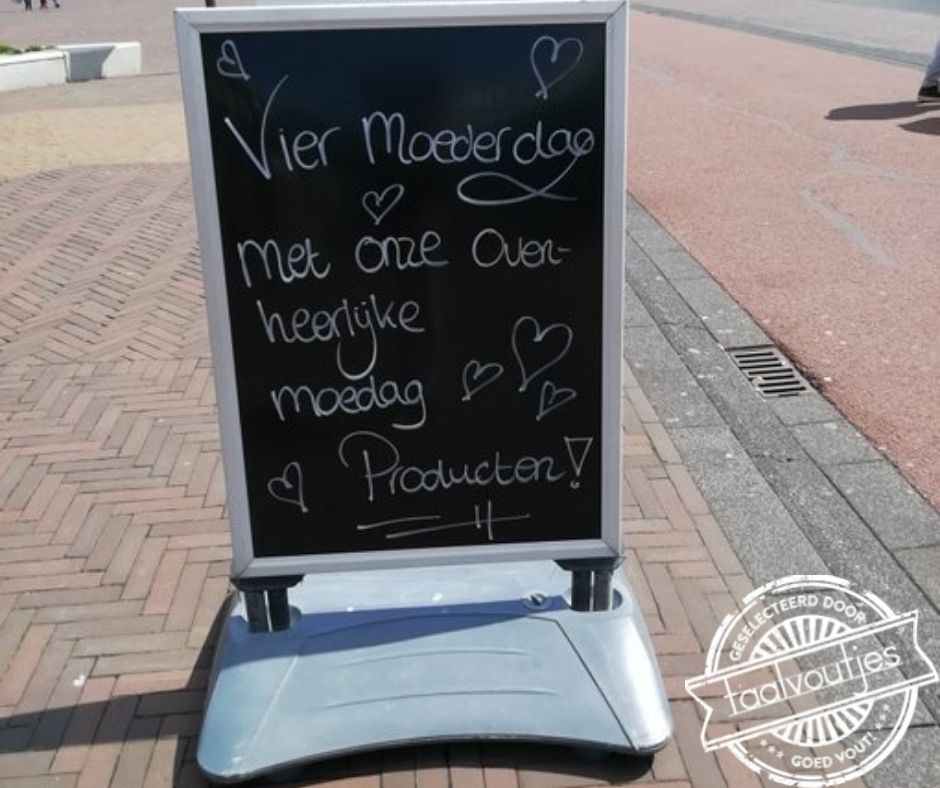 Vier Moederdag
met onze over-
heerlijke
moedag
Producten!
GESELECTEERD DOOR
taalvoutjes
GOED VOUT!